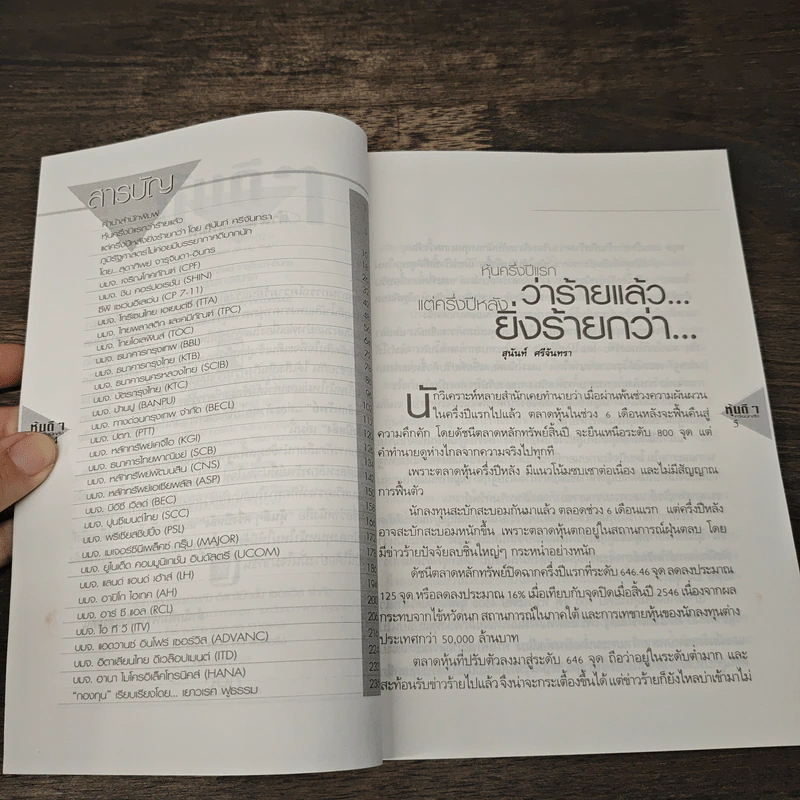 สารบัญ
คำนำสำนักพิมพ์
หุ้นครึ่งปีแรกว่าร้ายแล้ว
แต่ครึ่งปีหลังยิ่งร้ายกว่า โดย สุนันท์ ศรีจันทรา
ภูมิรัฐศาสตร์ไม่ค่อยมีบรรยากาศดีมากนัก
โดย... สุดาทิพย์ จารุจินดา-อินทร
บมจ. เจริญโภคภัณฑ์ (CPF)
บมจ. ชิน คอร์ปอเรชั่น (SHIN)
ซีพี เซเว่นอีเลเว่น (CP 7-11)
บมจ. โทรีเซนไทย เอเยนต์ซี่ (TTA)
บมจ. ไทยพลาสติก และเคมีภัณฑ์ (TPC)
บมจ. ไทยโอเลฟินส์ (TOC)
บมจ. ธนาคารกรุงเทพ (BBL)
บมจ. ธนาคารกรุงไทย (KTB)
บมจ. ธนาคารนครหลวงไทย (SCIB)
บมจ. บัตรกรุงไทย (KTC)
บมจ. บ้านปู (BANPU)
บมจ. ทางด่วนกรุงเทพ จำกัด (BECL)
บมจ. ปตท. (PTT)
บมจ. หลักทรัพย์เคจีไอ (KGI)
บมจ. ธนาคารไทยพาณิชย์ (SCB)
บมจ. หลักทรัพย์พัฒนสิน (CNS)
บมจ. หลักทรัพย์เอเซียพลัส (ASP)
บมจ. บีอีซี เวิลด์ (BEC)
บมจ. ปูนซีเมนต์ไทย (SCC)
บมจ. พรีเชียสชิปปิ้ง (PSL)
บมจ. เมเจอร์ซีนีเพล็กซ์ กรุ้ป (MAJOR)
บมจ. ยูไนเต็ด คอมมูนิเกชั่น อินดัสตรี (UCOM)
บมจ. แลนด์ แอนด์ เฮ้าส์ (LH)
บมจ. อาปิโก ไฮเทค (AH)
บมจ. อาร์ ซี แอล (RCL)
บมจ. ไอ ที วี (ITV)
บมจ. แอดวานซ์ อินโฟร์ เซอร์วิส (ADVANC)
บมจ. อิตาเลียนไทย ดีเวล๊อปเมนต์ (ITD)
บมจ. ฮานา ไมโครอิเล็คโทรนิคส์ (HANA)
"กองทุน" เรียบเรียงโดย... เยาวเรศ ฟูธรรม
หุ้นดี ๆ
หุ้นครึ่งปีแรก
ว่าร้ายแล้ว...
แต่ครึ่งปีหลัง
ยิ่งร้ายกว่า...
สุนันท์ ศรีจันทรา
นักวิเคราะห์หลายสำนักเคยทำนายว่า เมื่อผ่านพ้นช่วงความผันผวน
ในครึ่งปีแรกไปแล้ว ตลาดหุ้นในช่วง 6 เดือนหลังจะฟื้นคืนสู่
ความคึกคัก โดยดัชนีตลาดหลักทรัพย์สิ้นปี จะยืนเหนือระดับ 800 จุด แต่
คำทำนายดูห่างไกลจากความจริงไปทุกที
เพราะตลาดหุ้นครึ่งปีหลัง มีแนวโน้มซบเซาต่อเนื่อง และไม่มีสัญญาณ
การฟื้นตัว
นักลงทุนสะบักสะบอมกันมาแล้ว ตลอดช่วง 6 เดือนแรก แต่ครึ่งปีหลัง
อาจสะบักสะบอมหนักขึ้น เพราะตลาดหุ้นตกอยู่ในสถานการณ์ฝุ่นตลบ โดย
มีข่าวร้ายปัจจัยลบชิ้นใหญ่ๆ กระหน่ำอย่างหนัก
ดัชนีตลาดหลักทรัพย์ปิดฉากครึ่งปีแรกที่ระดับ 646.46 จุด ลดลงประมาณ
125 จุด หรือลดลงประมาณ 16% เมื่อเทียบกับจุดปิดเมื่อสิ้นปี 2546 เนื่องจากผล
กระทบจากไข้หวัดนก สถานการณ์ในภาคใต้ และการเทขายหุ้นของนักลงทุนต่าง
ประเทศกว่า 50,000 ล้านบาท
ตลาดหุ้นที่ปรับตัวลงมาสู่ระดับ 646 จุด ถือว่าอยู่ในระดับต่ำมาก และ
สะท้อนรับข่าวร้ายไปแล้ว จึงน่าจะกระเตื้องขึ้นได้ แต่ข่าวร้ายก็ยังไหลบ่าเข้ามาไม่
หุ้นดี ๆ
5